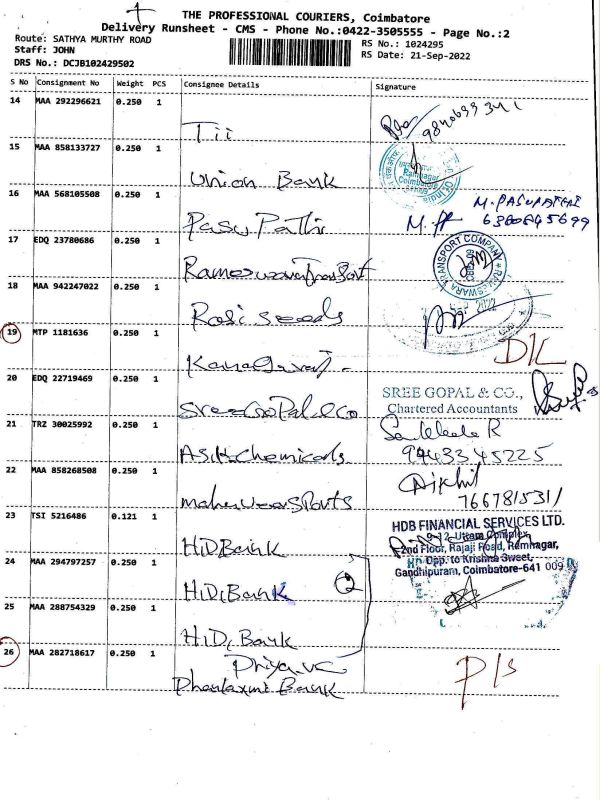 THE PROFESSIONAL COURIERS, Coimbatore
Delivery Runsheet - CMS - Phone No.:0422-3505555 - Page No.:2
Route: SATHYA MURTHY ROAD
Staff: JOHN
DRS No.: DCJB102429502
RS No.: 1024295
RS Date: 21-Sep-2022
S No Consignment No Weight PCS Consignee Details Signature
14 MAA 292296621 0.250 1
Tii
15 MAA 858133727 0.250 1
Union Bank
16 MAA 568105508 0.250 1
Pasu Pathi
M. PASUPATHI
17 EDQ 23780686 0.250 1
TRANSPORT COMPANY
18 MAA 942247022 0.250 1
Rasi seeds
2022
19 MTP 1181636 0.250 1
D/L
20 EDQ 22719469 0.250 1
SREE GOPAL & CO.,
Chartered Accountants
Sree GoPal & Co
21 TRZ 30025992 0.250 1
9443345225
ASK Chemicals
22 MAA 858268508 0.250 1
Nikhil
766781531/
23 TSI 5216486 0.121 1
HDB FINANCIAL SERVICES LTD.
Uttam Complex,
2nd Floor, Rajaji Road, Ramnagar,
HiD, Bank
24 MAA 294797257 0.250 1
Opp. to Krishna Sweet,
Gandhipuram, Coimbatore-641 009
HiD, Bank
25 MAA 288754329 0.250 1
HiD, Bank
26 MAA 282718617 0.250 1
Priya.vc
Dhanlaxmi Bank
P/s